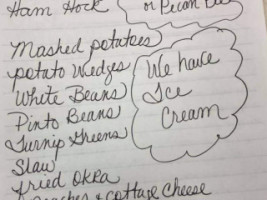 Ham Hock
or Pecan Pie
Mashed potatoes
potato Wedges
White Beans
Pinto Beans
Turnip Greens
Slaw
fried OKRA
Peaches & cottage cheese
We have
Ice
Cream